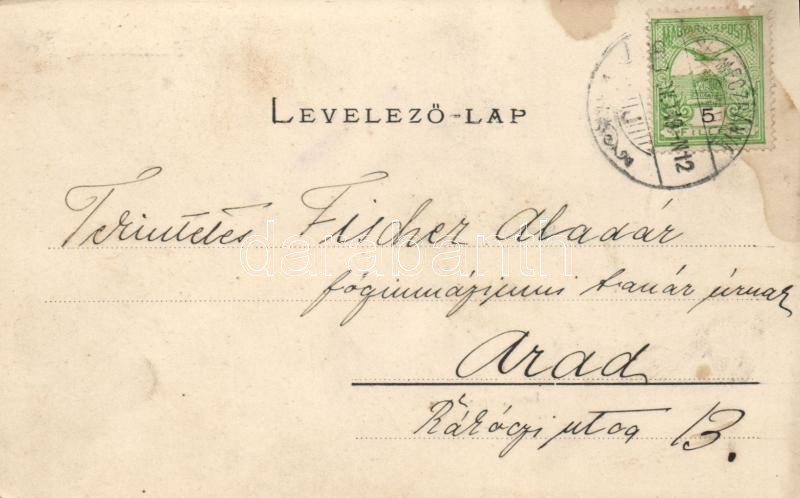 MAGYAR KIR. POSTA
5
LEVELEZŐ-LAP
Tekintetes Fischer Aladár
főgimnáziumi tanár úrnak
Arad
Rákóczi utca 13.
darabanth